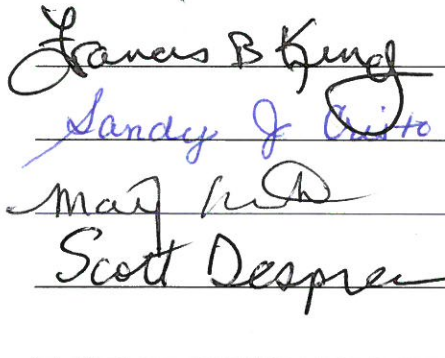 Francis B King
Sandy J Cristo
Mary
Scott